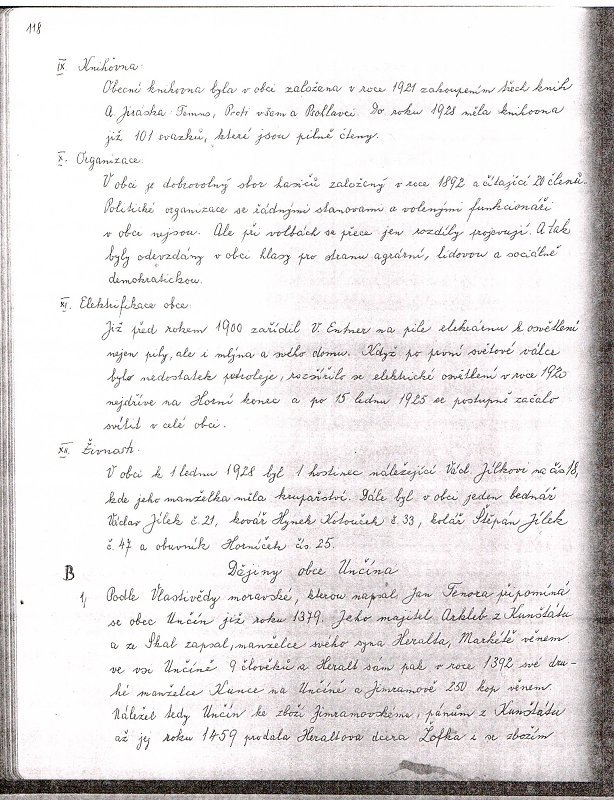 118
IX. Knihovna:
Obecní knihovna byla v obci založena v roce 1921 zakoupením třech knih
A. Jiráska Temno, Proti všem a Bollavci. Do roku 1928 měla knihovna
již 101 svazků, které jsou pilně čteny.
X. Organizace:
V obci je dobrovolný sbor hasičů založený v roce 1892 a čítající 20 členů.
Politické organizace se řádnými stanovami a volenými funkcionáři
v obci nejsou. Ale při volbách se přece jen rozdíly projevují. A tak
byly odevzdány v obci hlasy pro stranu agrární, lidovou a sociálně
demokratickou.
XI. Elektrifikace obce:
Již před rokem 1900 zařídil V. Entner na pile elekrárnu k osvětlení
nejen pily, ale i mlýna a svého domu. Když po první světové válce
bylo nedostatek petroleje, rozšířilo se elektrické osvětlení v roce 1920
nejdříve na Horní konec a po 15 lednu 1925 se postupně začalo
svítit v celé obci.
XII. Živnosti:
V obci k 1 lednu 1928 byl 1 hostinec náležející Vád. Jílkovi na čís 18,
kde jeho manželka měla krupařství. Dále byl v obci jeden bednář
Václav Jílek č. 21, kovář Hynek Kotouček č. 33, kolář Štěpán Jílek
č. 47 a obuvník Horníček čís. 25.
B Dějiny obce Unčína
1) Podle Vlastivědy moravské, kterou napsal Jan Tenora připomíná
se obec Unčín již roku 1379. Jeho majitel Arkleb z Kunštátu
a ze Skal zapsal, manželce svého syna Heralta, Markétě věnem
ve vsi Unčíně 9 člověků a Heralt sám pak v roce 1392 své dru-
hé manželce Kunce na Unčíně a Jimramově 250 kop věnem.
Náležel tedy Unčín ke zboží Jimramovskému, pánům z Kunštátu
až jej roku 1459 prodala Heraltova dcera Žofka i se zbožím